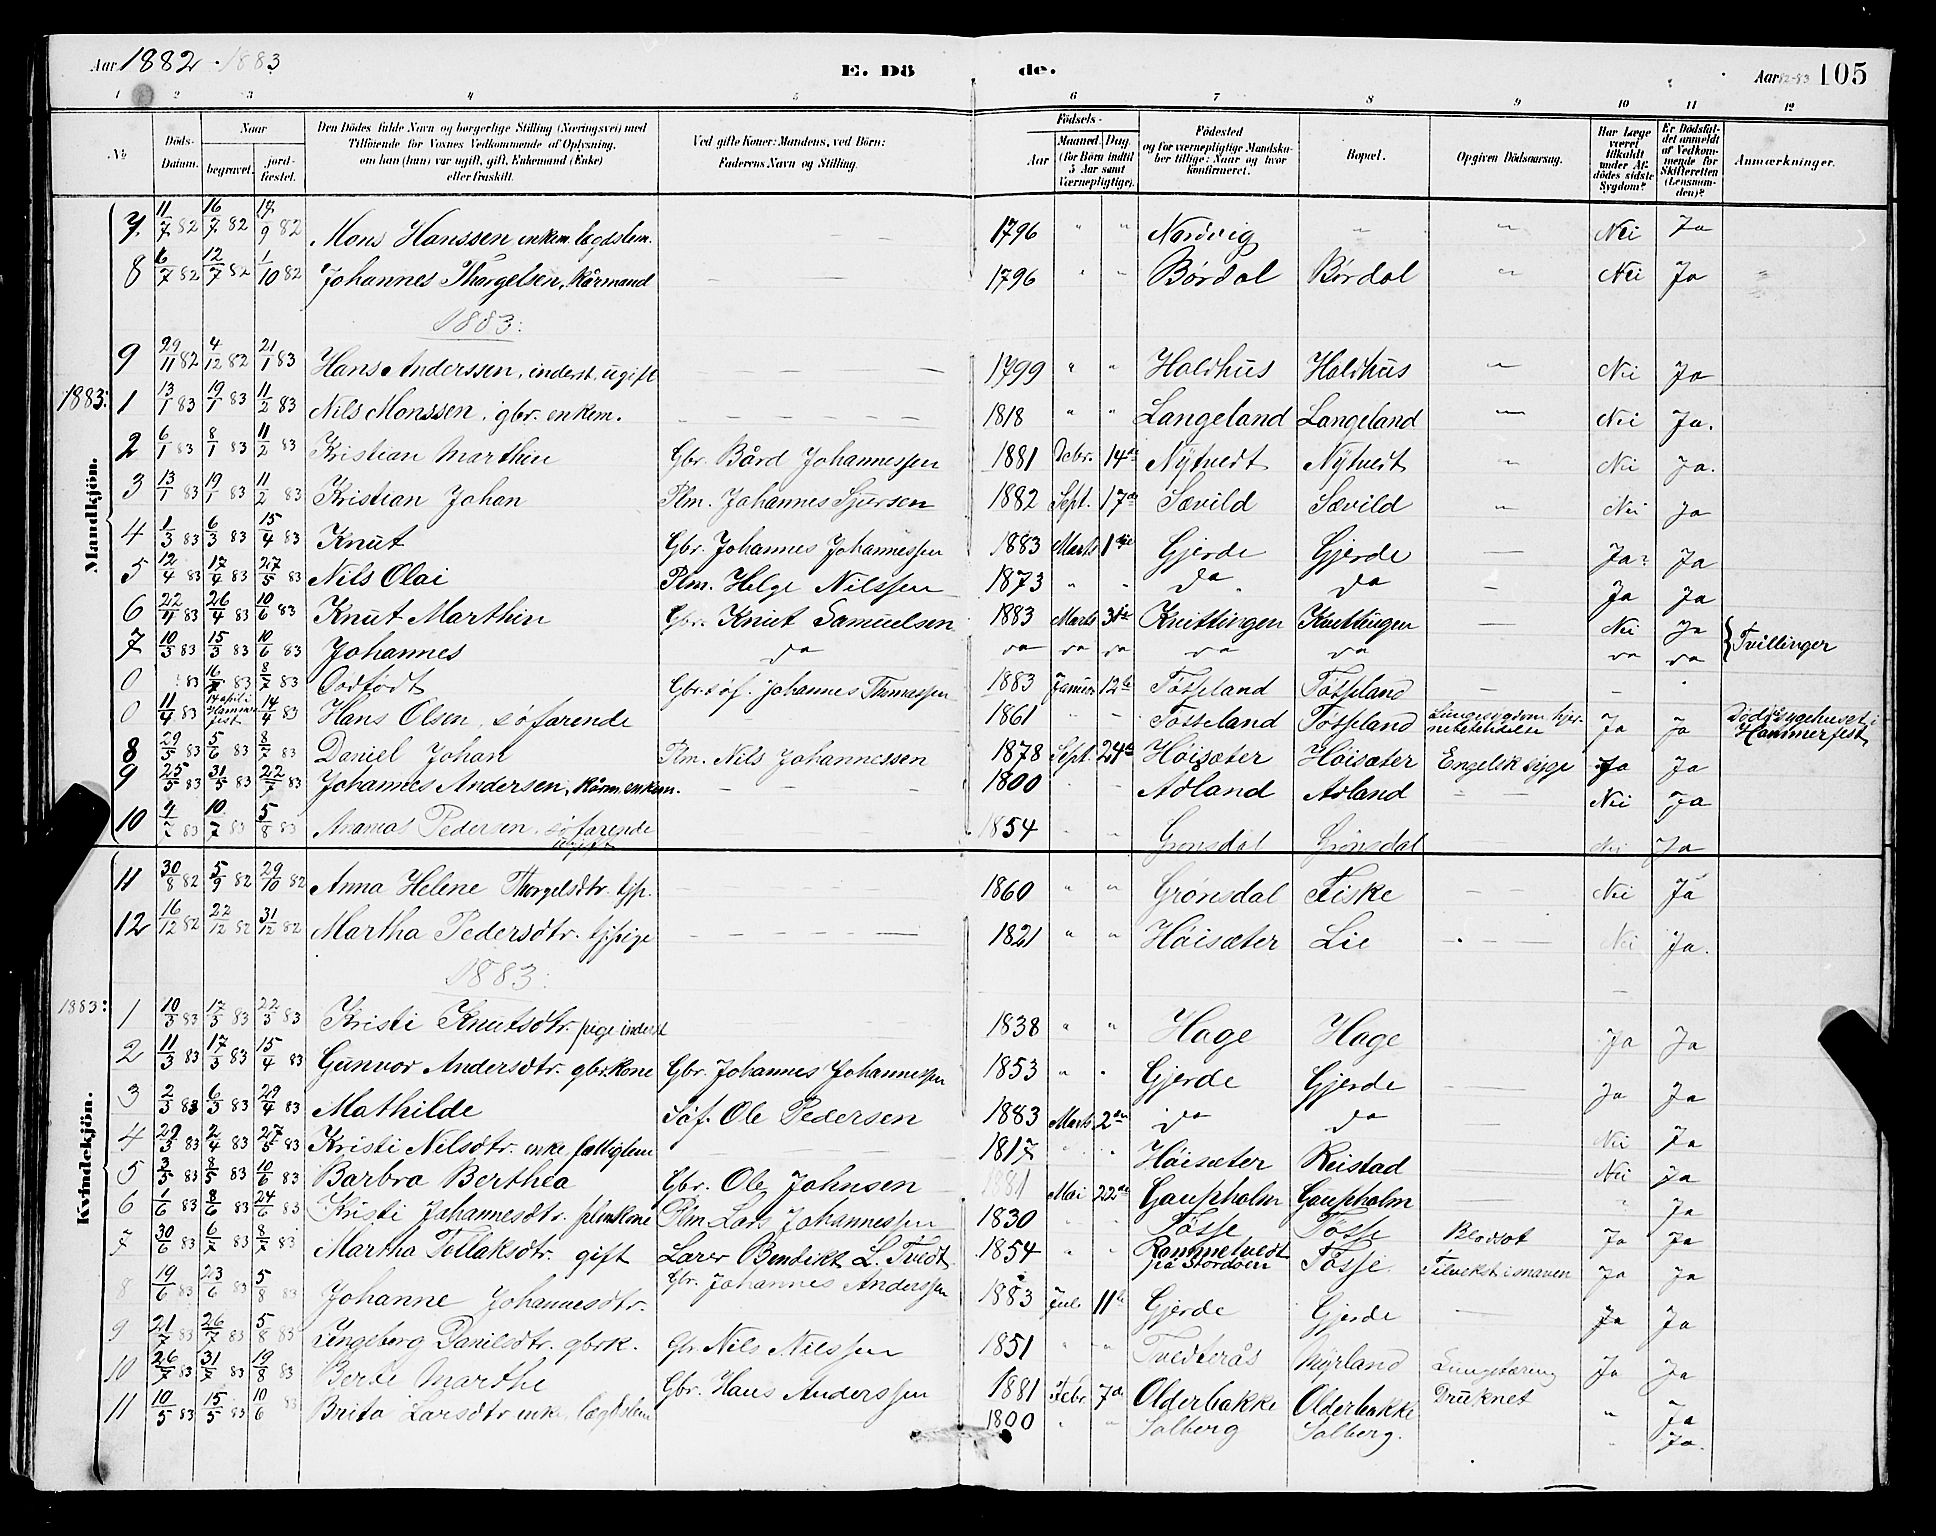 Aar 1882 - 1883
E. Dö de.
Aar 82-83 105
1 2 3 4 5 6 7 8 9 10 11 12
№ Döds-Datum. Naar begravet. jordfæstet. Den Dödes fulde Navn og borgerlige Stilling (Næringsvei) med Tilföiende for Voxnes Vedkommende af Oplysning, om han (hun) var ugift, gift, Enkemand (Enke) eller fraskilt. Ved gifte Koner: Mandens, ved Börn: Faderens Navn og Stilling. Födsels- Aar Maaned. Dag. (for Börn indtil 5 Aar samt Værnepligtige). Födested og for værnepligtige Mandskaber tillige: Naar og hvor konfirmeret. Bopæl. Opgiven Dödsaarsag. Har Læge været tilkaldt under Afdödes sidste Sygdom? Er Dödsfaldet anmeldt af Vedkommende for Skifteretten (Lensmanden)? Anmærkninger.
Mandkjön.
7. 11/7 82 16/7 82 17/9 82 Mons Hanssen enkem. lægdslem. 1796 " " Nordvig " " Nei Ja
8 6/7 82 12/7 82 1/10 82 Johannes Thorgelsen, kårmand 1796 " " Børdal Børdal " Nei Ja "
1883:
9 29/11 82 4/12 82 21/1 83 Hans Anderssen, inderst, ugift 1799 " " Holdhus Holdhus " Nei Ja
1883: 1 13/1 83 19/1 83 11/2 83 Nils Monssen, gbr. enkem. 1818 " " Langeland Langeland " Nei Ja.
2 6/1 83 8/1 83 11/2 83 Kristian Marthin Gbr. Bård Johannessen 1881 Debr. 14de Nÿtvedt Nÿtvedt " Nei Ja.
3 13/1 83 19/1 83 11/2 83 Kristian Johan Plm. Johannes Sjursen 1882 Sept. 17de Sævild Sævild " Nei Ja
4 1/3 83 6/3 83 15/4 83 Knut Gbr. Johannes Johannessen 1883 Marts 1ste Gjerde Gjerde Ja Ja
5 12/4 83 17/4 83 27/5 83 Nils Olai Plm. Helge Nilssen 1873 " " Da Da Ja Ja
6 22/4 83 26/4 83 10/6 83 Knut Marthin Gbr. Knut Samuelsen 1883 Marts 31te Knittingen Knittingen Nei Ja
7 10/3 83 15/3 83 10/6 83 Johannes Da Da Da Da Da Da Da Da Tvillinger
0 83 16/7 83 8/7 83 Dødfødt Gbr. søf. Johannes Thomassen 1883 Januar 12te Tøsseland Tøsseland
0 11/4 83 14 april i Hammerfest 14/4 83 Hans Olsen, søfarende 1861 Tøsseland Tøsseland Ja Ja Død å sygehuset i Hammerfest
8 29/5 83 5/6 83 8/7 83 Daniel Johan Plm. Nils Johannessen 1878 Sept. 24de Høisæter Høisæter Engelsk syge Ja Ja
9 25/5 83 31/5 83 22/7 83 Johannes Andersen, kårm. enkem. 1800 Adland Adland Nei Ja
10 4/7 83 10/7 83 5/8 83 Pedersen, søfarende ugift 1854 Grønsdal Grønsdal Nei Ja
Kvindekjön.
11 30/8 82 5/9 82 29/10 82 Anna Helene Thorgelsdtr. tjp. 1860 " " Grønsdal Fiske Nei Ja
12 16/12 82 22/12 82 31/12 82 Martha Pedersdtr. tj.pige 1821 " " Høisæter Lie Nei Ja.
1883:
1883: 1 10/3 83 17/3 83 22/3 83 Kristi Knutsdtr. pige inderst 1838 " " Hage Hage Ja Ja
2 11/3 83 17/3 83 15/4 83 Gunvor Andersdtr. gbr.kone Gbr. Johannes Johannessen 1853 " " Gjerde Gjerde Ja Ja
3 2/3 83 6/3 83 29/4 83 Mathilde Søf. Ole Pedersen 1883 Marts 2den Da Da Nei Ja
4 29/3 83 2/4 83 27/5 83 Kristi Nilsdtr. enke fattiglem 1817 Høisæter Reistad Nei Ja
5 3/5 83 8/5 83 10/6 83 Barbra Berthea Gbr. Ole Johnsen 1881 Mai 22de Gaupholm Gaupholm " Ja
6 1/6 83 8/6 83 24/6 83 Kristi Johannesdtr. plmkone Plm. Lars Johannessen 1830 Tøsse Tøsse Blodsot Ja Ja
7 30/6 83 6/7 83 8/7 83 Martha Tollaksdtr. gift Lærer Bendikt L. Tvedt 1854 " " Rommetvedt på Stordøen Tøsse. Tilvekst i maven Ja Ja
8 19/6 83 23/6 83 5/8 83 Johanne Johannesdtr. Gbr. Johannes Anderssen 1883 Juli 11te Gjerde Gjerde Ja Ja
9 21/7 83 26/7 83 5/8 83 Ingeborg Danielsdtr. gbrk. Gbr. Nils Nilssen 1851 " " Tvedterås Mÿrland Lungetæring Ja Ja
10 26/7 83 31/7 83 19/8 83 Berte Marthe Gbr. Hans Anderssen 1881 Febr. 7de Olderbakke Olderbakke Druknet " Ja
11 10/5 83 15/5 83 10/6 83 Brita Larsdtr enke, lægdslem 1800 " " Solberg Solberg. " Ja.